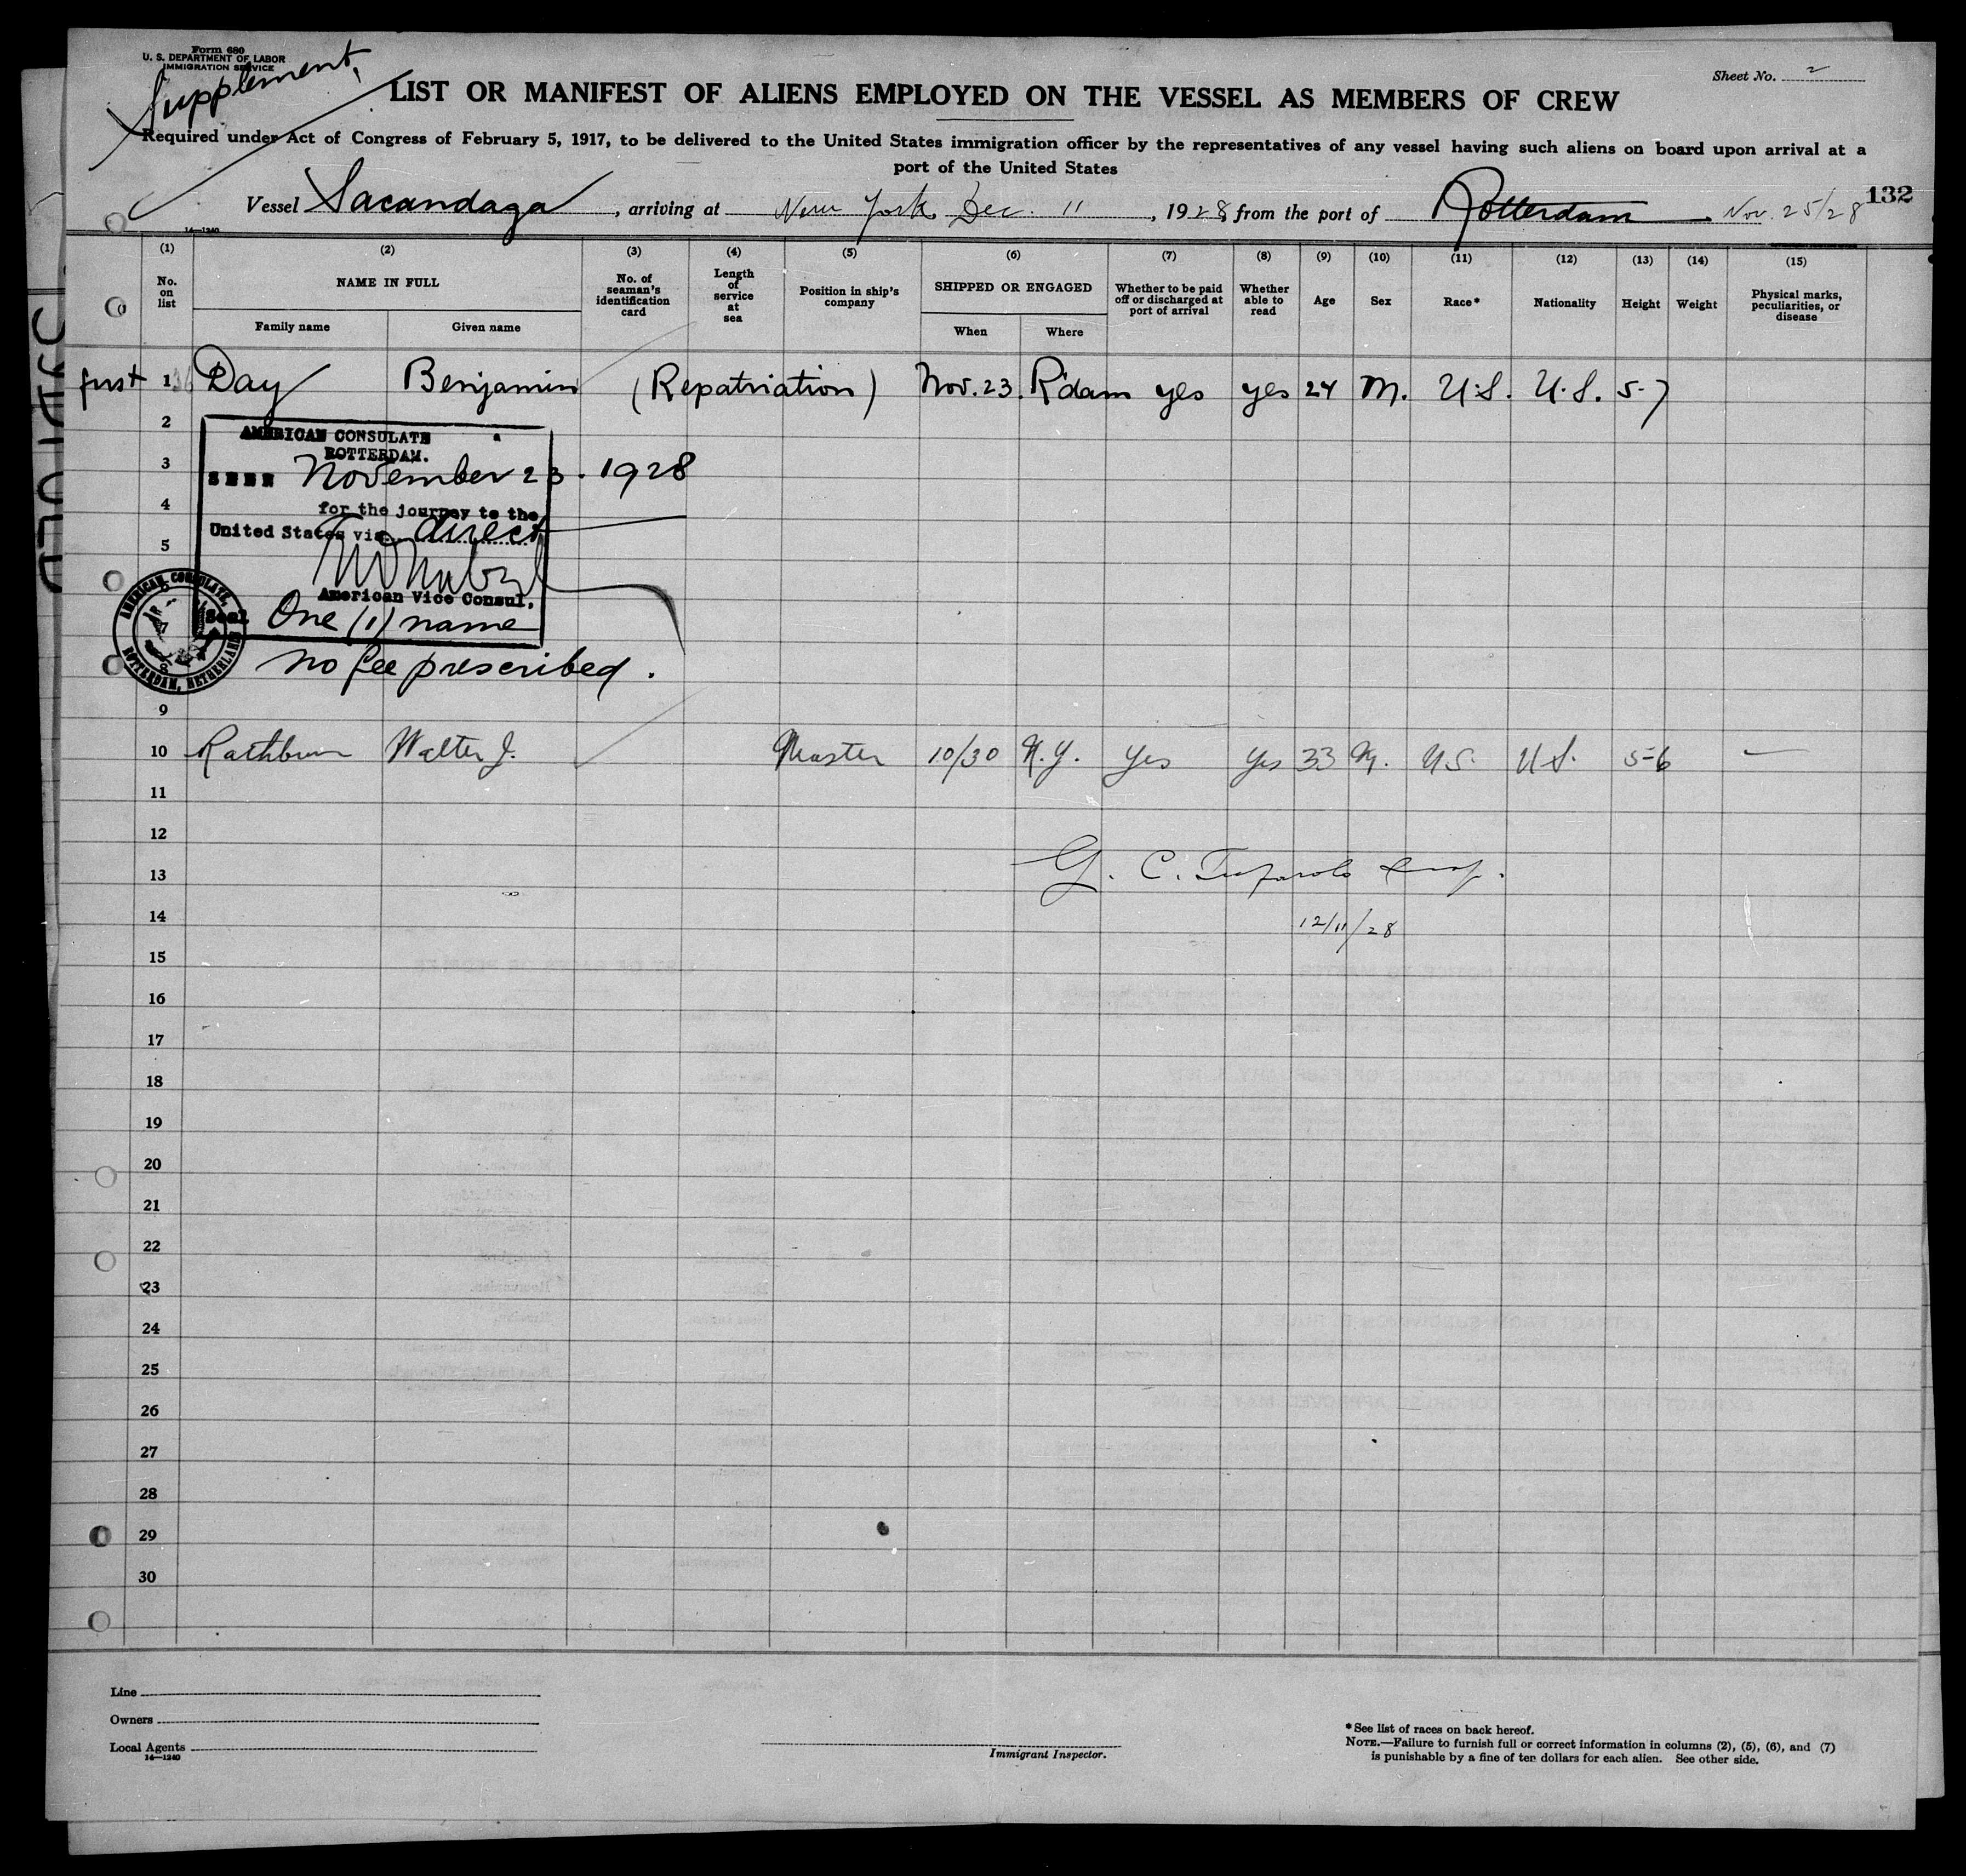 Form 680
U. S. DEPARTMENT OF LABOR
IMMIGRATION SERVICE
Supplement
Sheet No. 2
LIST OR MANIFEST OF ALIENS EMPLOYED ON THE VESSEL AS MEMBERS OF CREW
Required under Act of Congress of February 5, 1917, to be delivered to the United States immigration officer by the representatives of any vessel having such aliens on board upon arrival at a
port of the United States
Vessel Sacandaga, arriving at New York, Dec. 11, 1928 from the port of Rotterdam. Nov. 25/28
132
14—1240
(1) (2) (3) (4) (5) (6) (7) (8) (9) (10) (11) (12) (13) (14) (15)
No. on list
NAME IN FULL
Family name
Given name
No. of seaman's identification card
Length of service at sea
Position in ship's company
SHIPPED OR ENGAGED
When
Where
Whether to be paid off or discharged at port of arrival
Whether able to read
Age
Sex
Race*
Nationality
Height
Weight
Physical marks, peculiarities, or disease
first 1 Day Benjamin (Repatriation) Nov. 23. R'dam yes yes 24 M. U.S. U.S. 5-7
2
AMERICAN CONSULATE
ROTTERDAM.
3
SEEN November 23. 1928
4
for the journey to the
United States via direct
5
American Vice Consul.
Seal One (1) name
AMERICAN CONSULATE, ROTTERDAM, NETHERLANDS
no fee prescribed.
9
10 Rathbun Walter J. Master 10/30 N.Y. Yes Yes 33 M. U.S. U.S. 5-6 —
11
12
13
G. C.
14
12/11/28
15
16
17
18
19
20
21
22
23
24
25
26
27
28
29
30
Line
Owners
Local Agents
14—1240
Immigrant Inspector.
*See list of races on back hereof.
NOTE.—Failure to furnish full or correct information in columns (2), (5), (6), and (7)
is punishable by a fine of ten dollars for each alien. See other side.